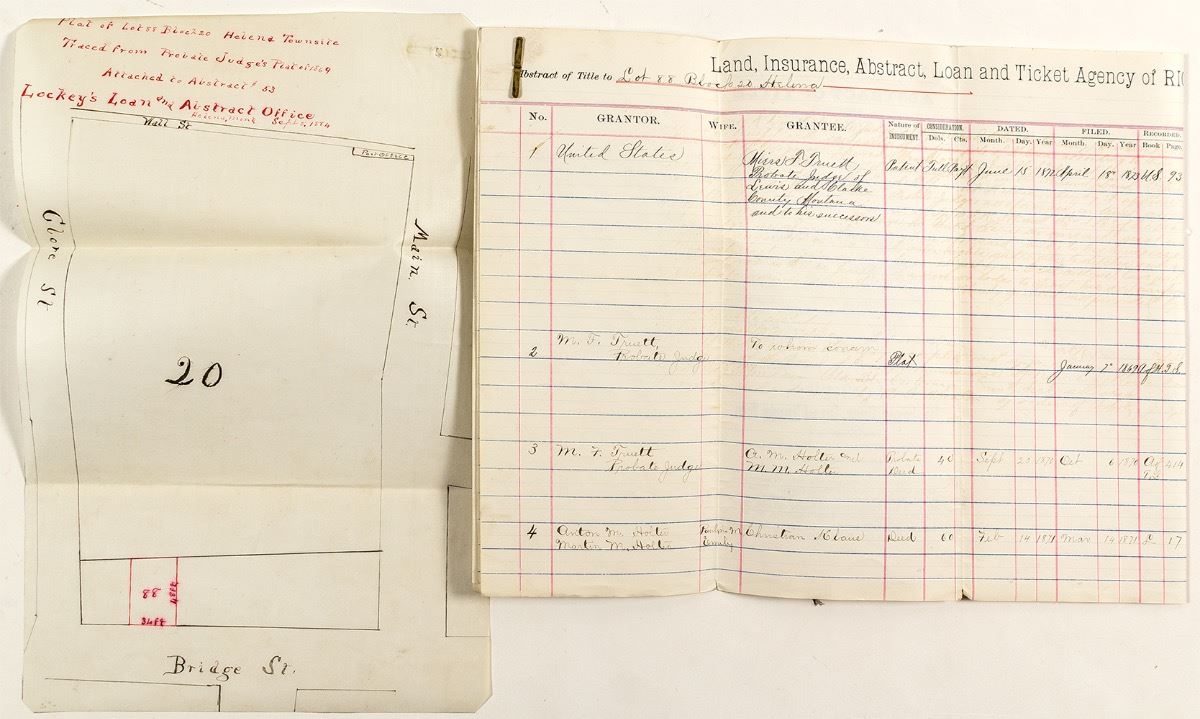 Plat of Lot 88 Block 20 Helena Townsite
Traced from Probate Judge's Plat of 1869
Attached to Abstract # 53
Lockey's Loan and Abstract Office
Helena, Mont Sept 5, 1884
Wall St
Clore St
Main St.
20
88
48ft
34ft
Bridge St.
Land, Insurance, Abstract, Loan and Ticket Agency of RI
Abstract of Title to Lot 88 Block 20 Helena
No. GRANTOR. WIFE. GRANTEE. Nature of INSTRUMENT. CONSIDERATION. Dols. Cts. DATED. Month. Day. Year FILED. Month. Day. Year RECORDED. Book Page.
1 United States Patent June 15 1872 April 18 1873 93
Truett
Probate Judge of
Lewis and Clarke
County Montana
and to his successors
2 M. F. Truett, To whom Plat
Probate Judge January 2" 1869
3 M. F. Truett A. M. Holter and Probate 40 Sept 1870 Oct 6 1870 414
Probate Judge M. M. Holter Deed
4 Anton M. Holter Christian Deed 60 Feb 14 1871 Mar 14 1871 L 17
Martin M. Holter Emily